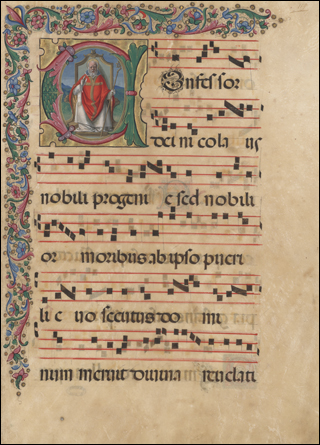 C Onfes sor
dei nicola us
nobili progeni e sed nobili
or moribus ab ipso pueri
ti e uo secutus do mi
num meruit diuina reuelati